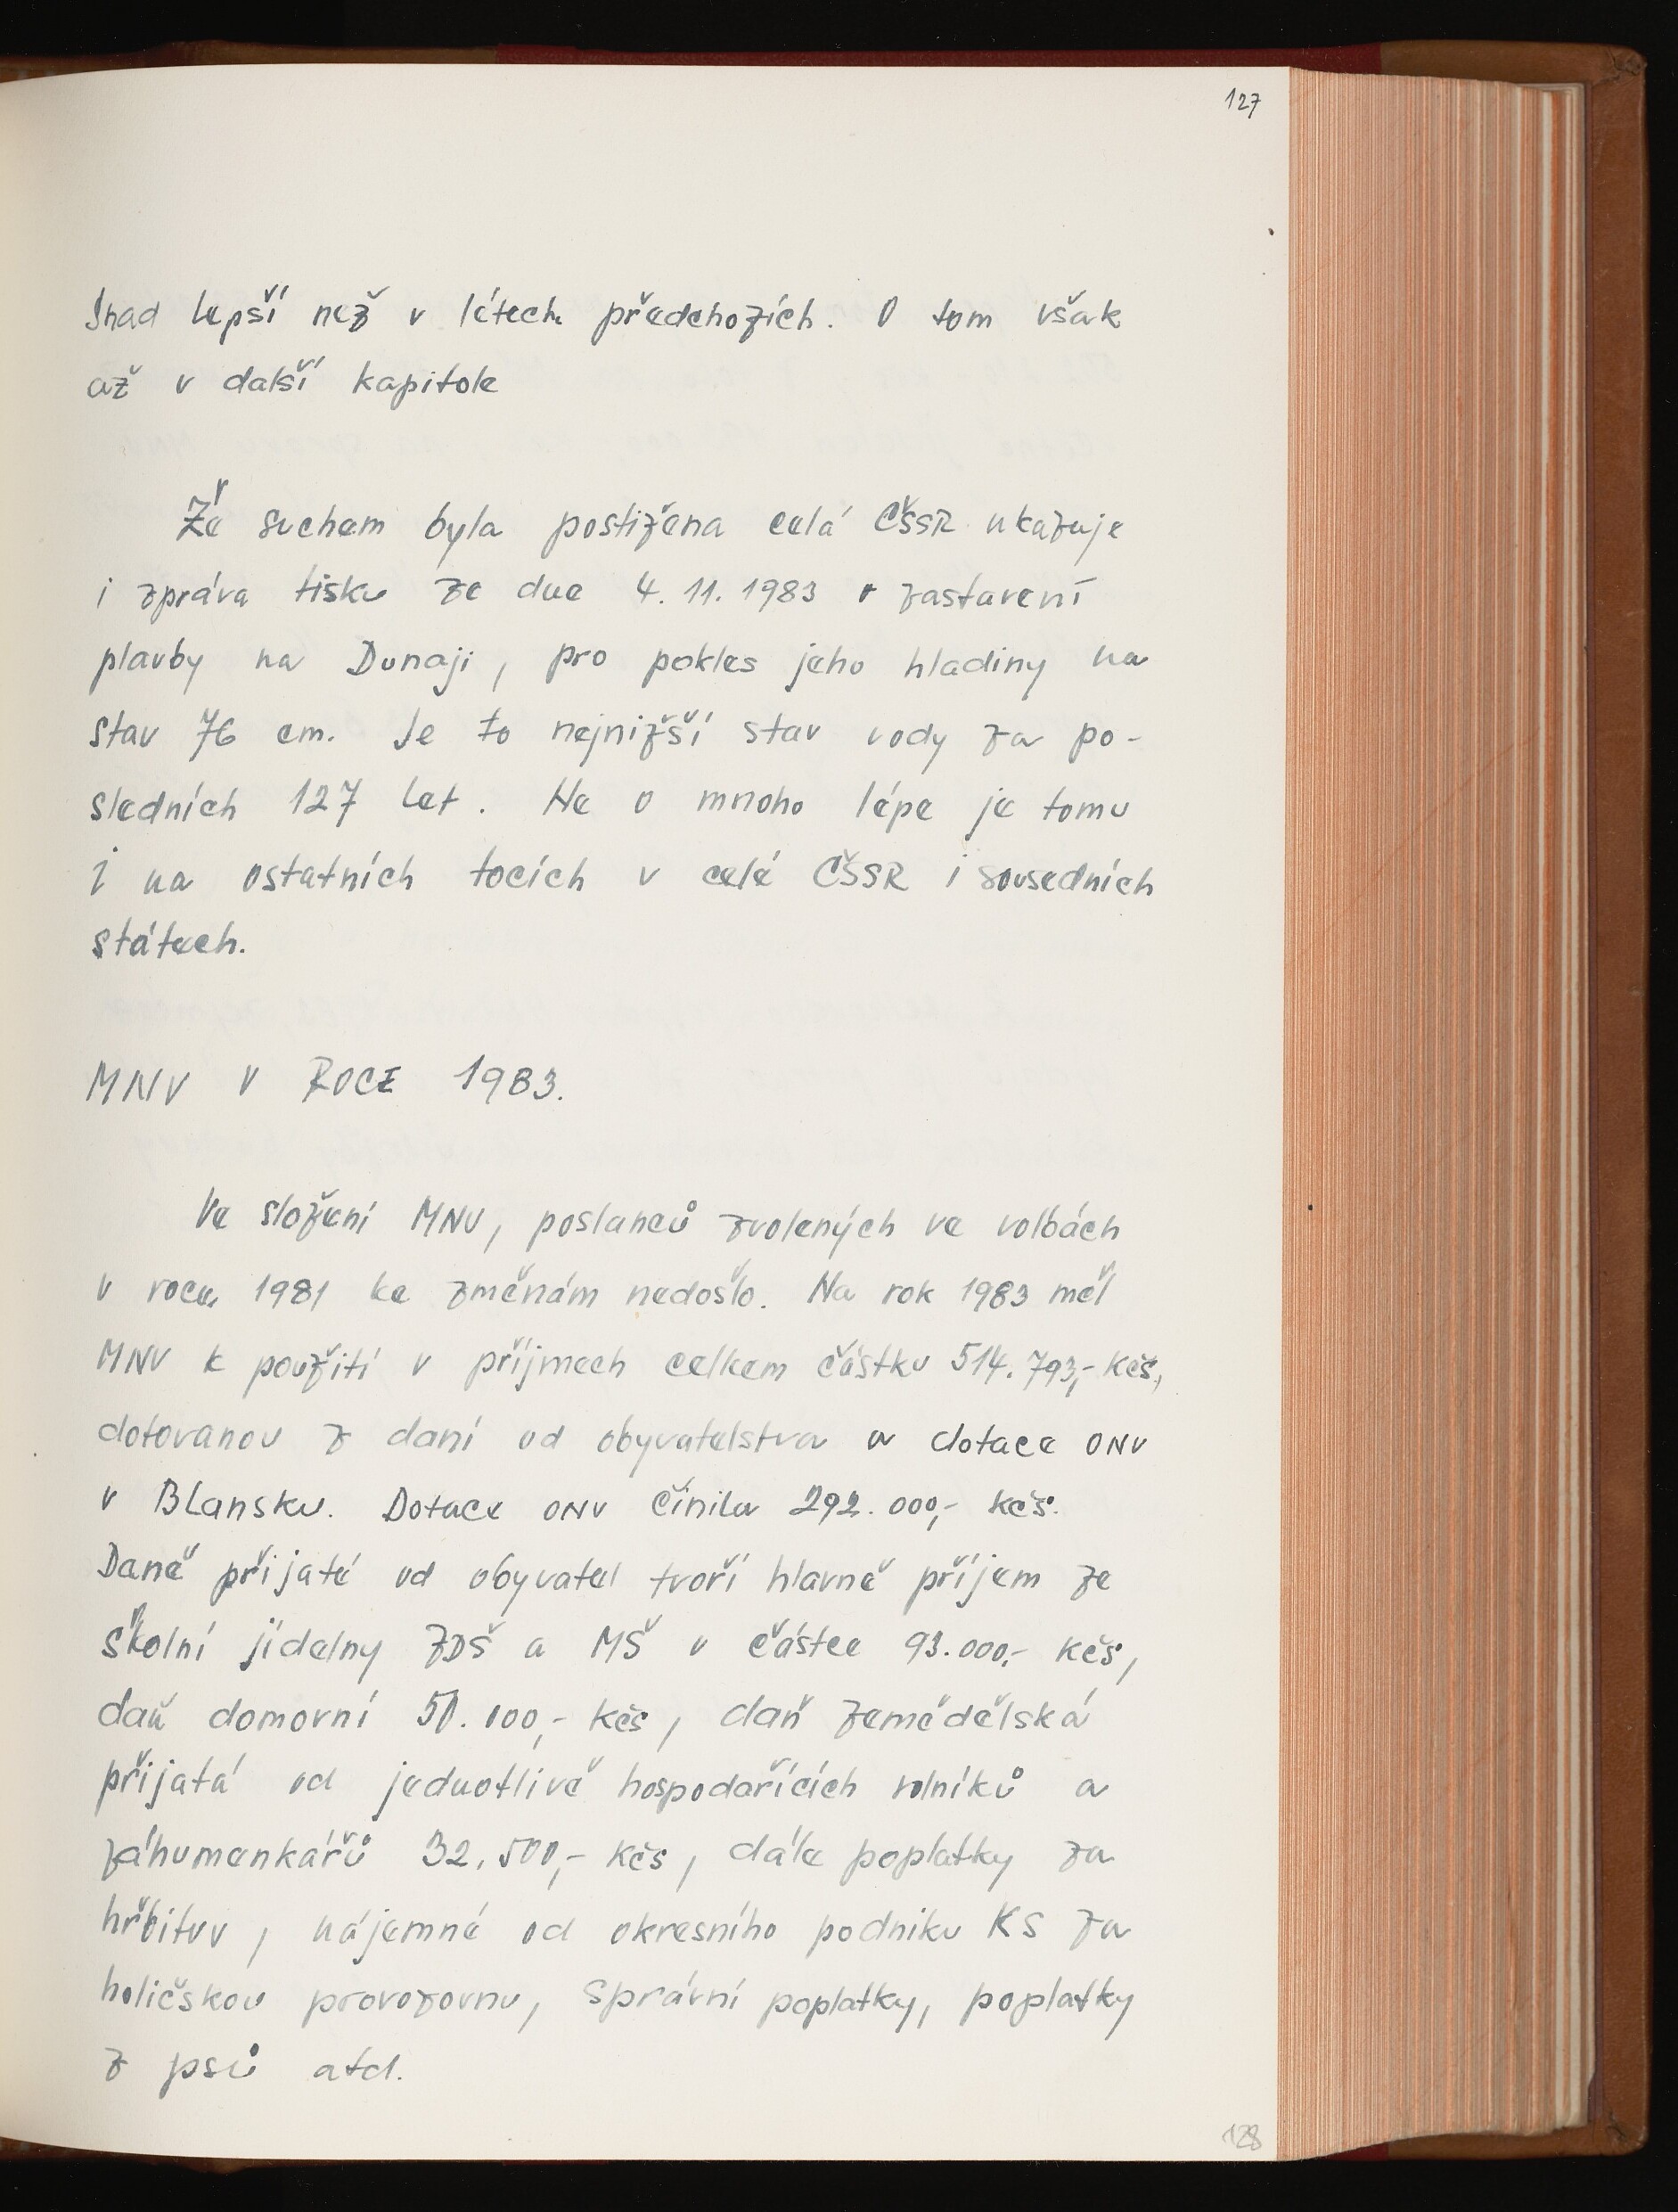 127
snad lepší než v létech předchozích. O tom však
až v další kapitole
Že suchem byla postižena celá ČSSR ukazuje
i zpráva tisku ze dne 4. 11. 1983 o zastavení
plavby na Dunaji, pro pokles jeho hladiny na
stav 76 cm. Je to nejnižší stav vody za po-
sledních 127 let. Ne o mnoho lépe je tomu
i na ostatních tocích v celé ČSSR i sousedních
státech.
MNV V ROCE 1983.
Ve složení MNV, poslanců zvolených ve volbách
v roce 1981 ke změnám nedošlo. Na rok 1983 měl
MNV k použití v příjmech celkem částku 514.793,- Kčs,
dotovanou z daní od obyvatelstva a dotace ONV
v Blansku. Dotace ONV činila 292.000,- Kčs.
Daně přijaté od obyvatel tvoří hlavně příjem ze
školní jídelny ZDŠ a MŠ v částce 93.000,- Kčs,
daň domovní 50.000,- Kčs, daň zemědělská
přijatá od jednotlivě hospodařících rolníků a
záhumenkářů 32.500,- Kčs, dále poplatky za
hřbitov, nájemné od okresního podniku KS za
holičskou provozovnu, správní poplatky, poplatky
z psů atd.
128